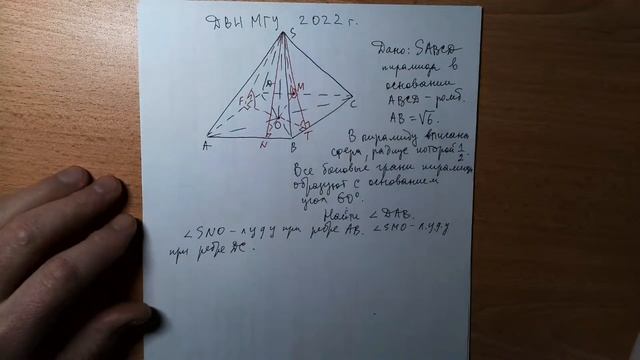 ДВИ МГУ 2022 г.
Дано: SABCD
пирамида в
основании
ABCD - ромб.
AB = √6.
В пирамиду вписана
сфера, радиус которой 1/2
Все боковые грани пирамиды
образуют с основанием
угол 60°.
Найти ∠DAB.
∠SNO - л.у.д.у при ребре AB. ∠SMO - л.у.д.у
при ребре DC.
S
D
M
F
C
O
A
N
B
T